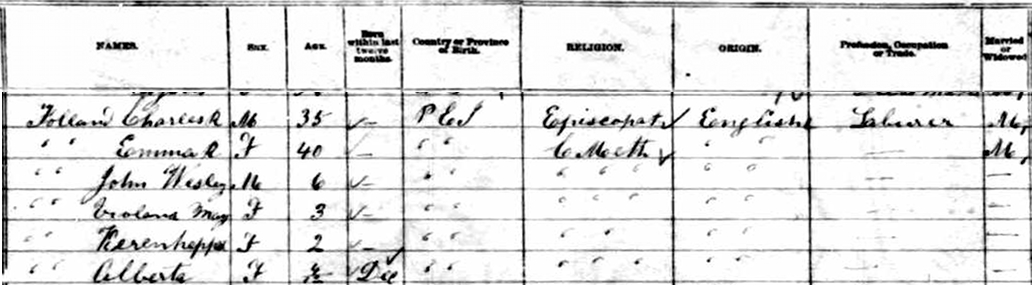 NAMES. SEX. AGE. Born within last twelve months. Country or Province of Birth. RELIGION. ORIGIN. Profession, Occupation or Trade. Married or Widowed
Charles R M 35 P E I Episcopat English Laburer M
" " Emma R F 40 " " C Meth " " M
" " John Wesley M 6 " " " " " " "
" " May F 3 " " " " " " "
" " Kerenhappa F 2 " " " " " "
" " Alberta F Dec " " " " " " "